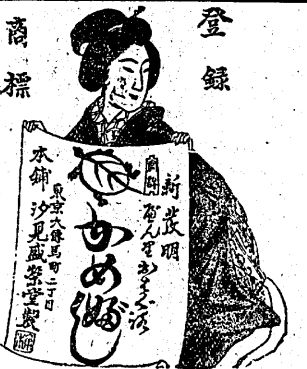 登録
商標
新發明
かめぶし
東京大傳馬町二丁目
本舗 汐見盛榮堂製